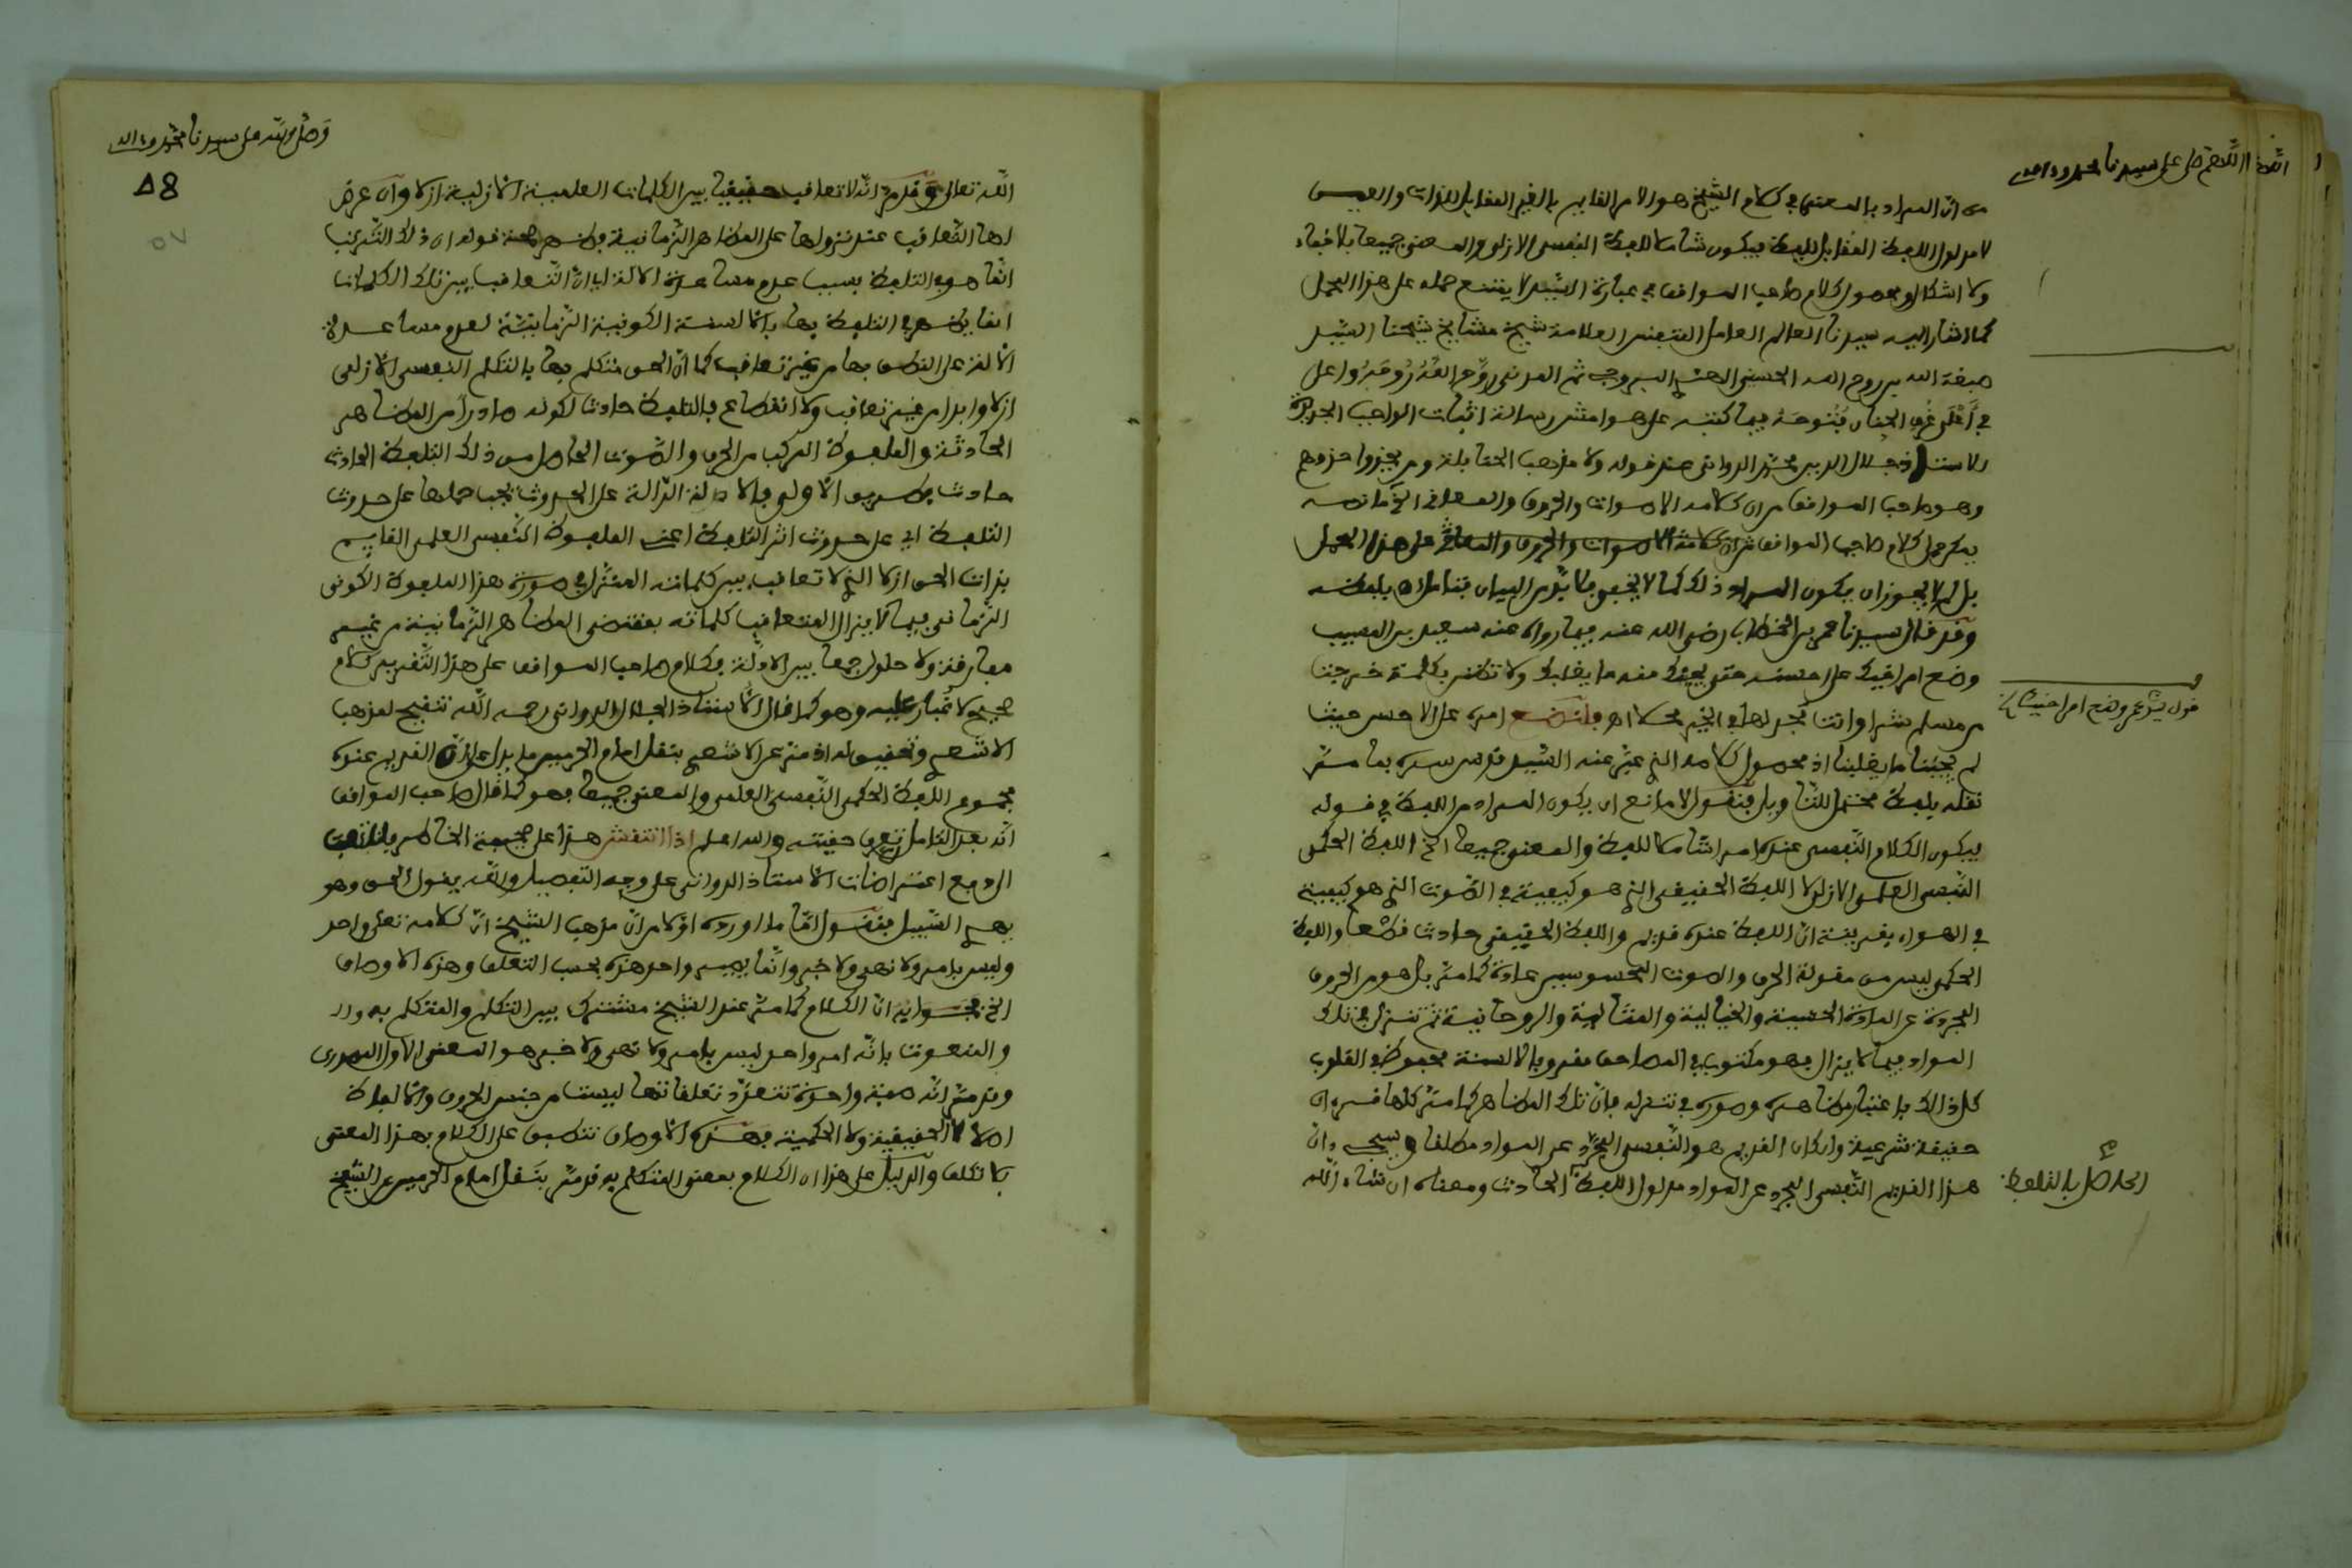 اللهم صل على سيدنا محمد وءاله
من ان المراد بالمعنى في كلام الشيخ هو الامر القايم بالغير المقابل للذات والعين
لا مدلول اللفظ المقابل للفظ فيكون شاملا للفظ النفسي الازلي والمعنى جميعا بلا خفاء
ولا اشكال ومحصول كلام صاحب المواقف في عبارة السيد لا يمتنع حمله على هذا المحمل
كما اشار اليه سيدنا العالم العامل المتفنن العلامة شيخ مشايخ شيخنا السيد
صبغة الله بن روح الله الحسني البروجي ثم المدني روح الله روحه واعلى
في أعلى غرف الجنان فتوحه فيما كتبه على هوامش رسالة اثبات الواجب الجديدة
للاستاذ جلال الدين محمد الدواني عند قوله ولا مذهب الحنابلة ومن يحذوا حذوهم
وهو صاحب المواقف من ان كلامه الاصوات والحروف والمعاني الخ ما نصه
يمكن حمل كلام صاحب المواقف من ان كلامه الاصوات والحروف والمعاني على هذا المحمل
بل لم لا يجوز ان يكون المراد ذلك كما لا يخفى فلا بد من البيان فتامل اه بلفظه
وقد قال سيدنا عمر بن الخطاب رضي الله عنه فيما رواه عنه سعيد بن المسيب
وضع امر اخيك على احسنه حتى يجيئك منه ما يغلبك ولا تظنن بكلمة خرجت
من مسلم شرا وانت تجد لها في الخير محملا اه فلنضع امره على الاحسن حيث
لم يجئنا ما يغلبنا اذ محصول كلامه الذي عبر عنه السيد قدس سره بما مر
نقله بلفظ محتمل للتاويل فنقول لا مانع ان يكون المراد من اللفظ في قوله
فيكون الكلام النفسي عنده امرا شاملا للفظ والمعنى جميعا الخ اللفظ الحكمي
النفسي العلمي الازلي لا اللفظ الحقيقي الذي هو كيفية في الصوت الذي هو كيفية
في الهواء بقرينة ان اللفظ عنده قديم واللفظ الحقيقي حادث قطعا واللفظ
الحكمي ليس من مقولة الحرف والصوت المحسوسين عادة كما مر بل هو من الحروف
المجردة عن المادة الحسية والخيالية والمثالية والروحانية ثم تنزل في تلك
المواد فيما لا يزال فهو مكتوب في المصاحف مقرو بالالسنة محفوظ في القلوب
كل ذلك باعتبار مظاهره وصوره في تنزله فان تلك المظاهر كما مر كلها قرءان
حقيقة شرعية وان كان القديم هو النفسي المجرد عن المواد مطلقا وسيجيء ان
هذا القديم النفسي المجرد عن المواد مدلول اللفظ الحادث ومعناه ان شاء الله
قول سيدنا عمر وضع امر اخيك الخ
الحاصل بالتلفظ
وصلى الله على سيدنا محمد وءاله
58
٥٧
الله تعالى وقد مر انه لا تعاقب حقيقيا بين الكلمات العلمية الازلية ازلا وان عرض
لها التعاقب عند نزولها على المظاهر الزمانية فظهر صحة قوله ان ذلك الترتيب
انما هو في التلفظ بسبب عدم مساعدة الالة اي ان التعاقب بين تلك الكلمات
انما يظهر في التلفظ بها بالالسنة الكونية الزمانية لعدم مساعدة
الالة على النطق بها من غير تعاقب كما ان الحق متكلم بها بالتكلم النفسي الازلي
ازلا وابدا من غير تعاقب ولا انقطاع فالتلفظ حادث لكونه صادرا من المظاهر
الحادثة والملفوظ المركب من الحرف والصوت الحاصل من ذلك التلفظ الحادث
حادث بطريق الاولى فالادلة الدالة على الحدوث يجب حملها على حدوث
التلفظ اي على حدوث اثر التلفظ اعني الملفوظ لا النفسي العلمي القايم
بذات الحق ازلا الذي لا تعاقب بين كلماته المتنزل في صورة هذا الملفوظ الكوني
الزماني فيما لا يزال المتعاقب كلماته بمقتضى المظاهر الزمانية من غير
مفارقة ولا حلول جمعا بين الادلة فكلام صاحب المواقف على هذا التقدير كلام
صحيح لا غبار عليه وهو كما قال الاستاذ الجلال الدواني رحمه الله تنقيح لمذهب
الاشعري وتحقيق له اذ مر عن الاشعري بنقل امام الحرمين ما يدل على ان القديم عنده
مجموع اللفظ الحكمي النفسي العلمي والمعنى جميعا فهو كما قال صاحب المواقف
انه بعد التامل تعرف حقيته والله اعلم اذا انتقش هذا على صحيفة الخاطر فلنلتفت
الى دفع اعتراضات الاستاذ الدواني على وجه التفصيل والله يقول الحق وهو
يهدي السبيل فنقول اما ما اورده اولا من ان مذهب الشيخ ان كلامه تعلى واحد
وليس بامر ولا نهي ولا خبر وانما يصير واحد هذه بحسب التعلق وهذه الاوصاف
الخ فجوابه ان الكلام كما مر عند الشيخ مشترك بين التكلم والمتكلم به وال
والمنعوت بانه امر واحد ليس بامر ولا نهي ولا خبر هو المعنى الاول المصدري
وقد مر انه صفة واحدة تتعدد تعلقاتها ليست من جنس الحروف والالفاظ
اصلا لا الحقيقية ولا الحكمية فهذه الاوصاف تنطبق على الكلام بهذا المعنى
بلا تكلف والدليل على هذا ان الكلام بمعنى المتكلم به قد مر بنقل امام الحرمين عن الشيخ